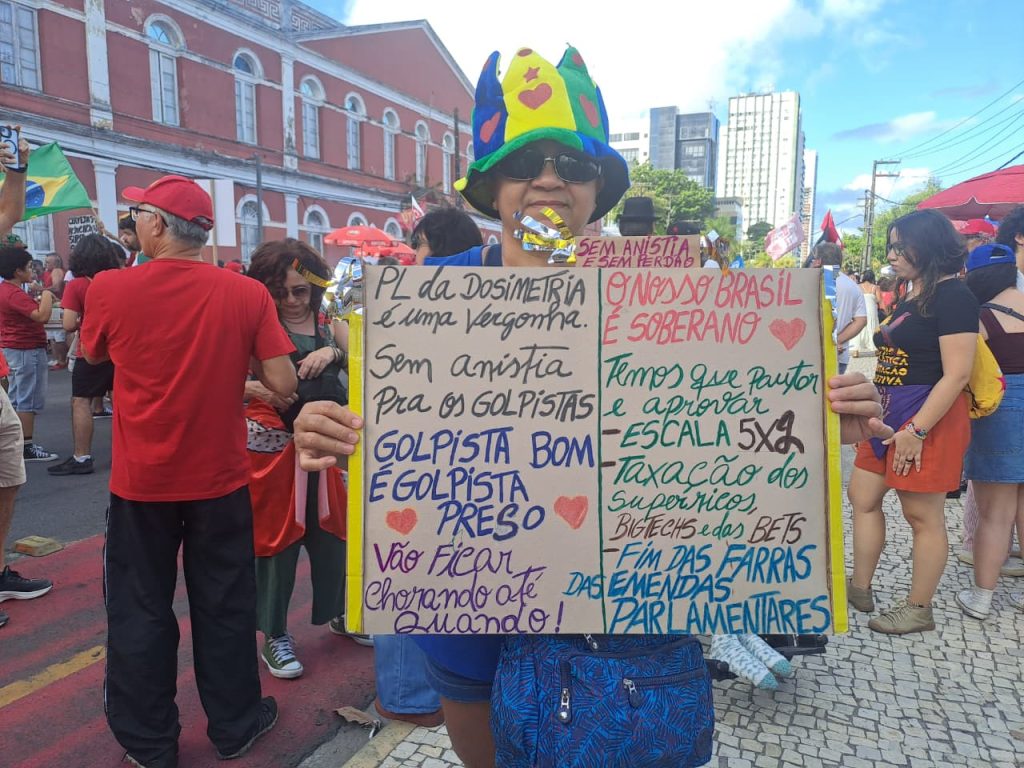 SEM ANISTIA
E SEM PERDÃO
PL da DOSIMETRIA
é uma Vergonha.
Sem anistia
Pra os GOLPISTAS
GOLPISTA BOM
É GOLPISTA
PRESO
Vão Ficar
Chorando até
Quando!
O NOSSO BRASIL
É SOBERANO
Temos que Pautar
e aprovar
- ESCALA 5X2
- Taxação dos
Superricos,
BIGTECHS e das BETS
- FIM DAS FARRAS
DAS EMENDAS
PARLAMENTARES